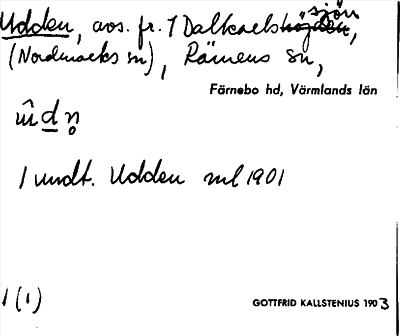 Udden, avs. fr. 1 Dalkarlssjön,
(Nordmarks sn), Rämens sn,
Färnebo hd, Värmlands län
û d n̥
1 undt. Udden ml 1901
1 (1)
GOTTFRID KALLSTENIUS 1903